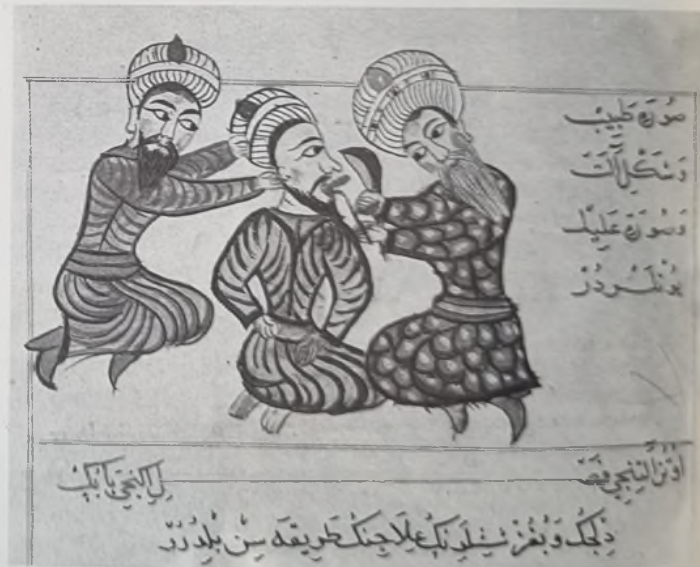 صورة طبيب
وشكل آلت
وصورة عليل
بونلردر
اوتز التنجي فصل ايكنجي بابنك
دلجك وبغز ششلرنك علاجنك طريقه سن بلدرر